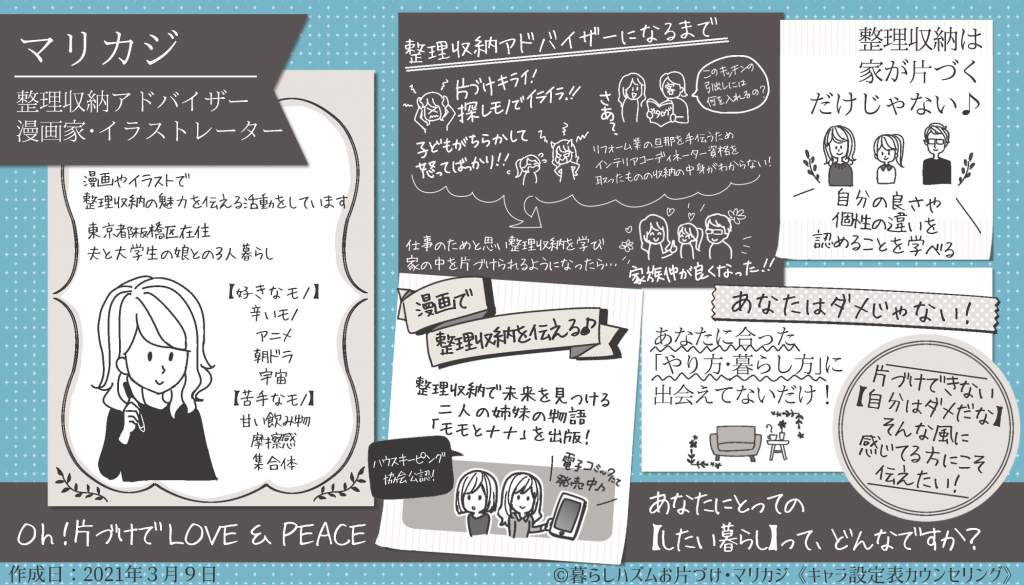 マリカジ
整理収納アドバイザー
漫画家･イラストレーター
漫画やイラストで
整理収納の魅力を伝える活動をしています
東京都板橋区在住
夫と大学生の娘との3人暮らし
【好きなモノ】
辛いモノ
アニメ
朝ドラ
宇宙
【苦手なモノ】
甘い飲み物
摩擦感
集合体
整理収納アドバイザーになるまで
片づけキライ!
探しモノでイライラ!!
子どもがちらかして
怒ってばっかり!!
さあ?
このキッチンの
引出しには
何を入れるの?
リフォーム業の旦那を手伝うため
インテリアコーディネーター資格を
取ったものの収納の中身がわからない!
仕事のためと思い整理収納を学び
家の中を片づけられるようになったら…
家族仲が良くなった!!
整理収納は
家が片づく
だけじゃない♪
自分の良さや
個性の違いを
認めることを学べる
漫画で
整理収納を伝える♪
整理収納で未来を見つける
二人の姉妹の物語
「モモとナナ」を出版!
ハウスキーピング
協会公認!
電子コミックにて
発売中♪
あなたはダメじゃない!
あなたに合った
「やり方・暮らし方」に
出会えてないだけ!
片づけできない
【自分はダメだな】
そんな風に
感じてる方にこそ
伝えたい!
Oh!片づけでLOVE & PEACE
あなたにとっての
【したい暮らし】って、どんなですか?
作成日：2021年３月９日
©暮らしハズムお片づけ・マリカジ《キャラ設定表カウンセリング》